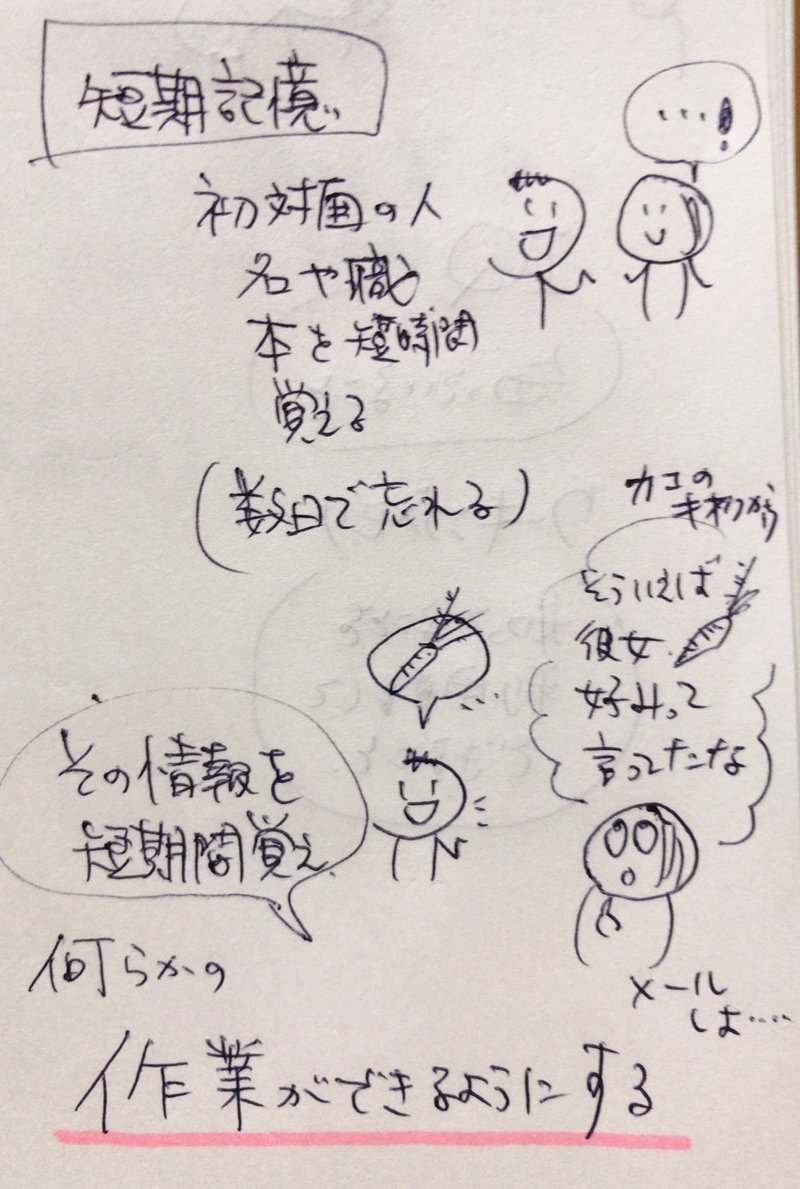 短期記憶
…!
初対面の人
名や職
本を短時間
覚える
(数日で忘れる)
カコの
から
そういえば
彼女
好みって
言ってたな
その情報を
短期間覚え
何らかの
メール
しよ…
作業ができるようにする